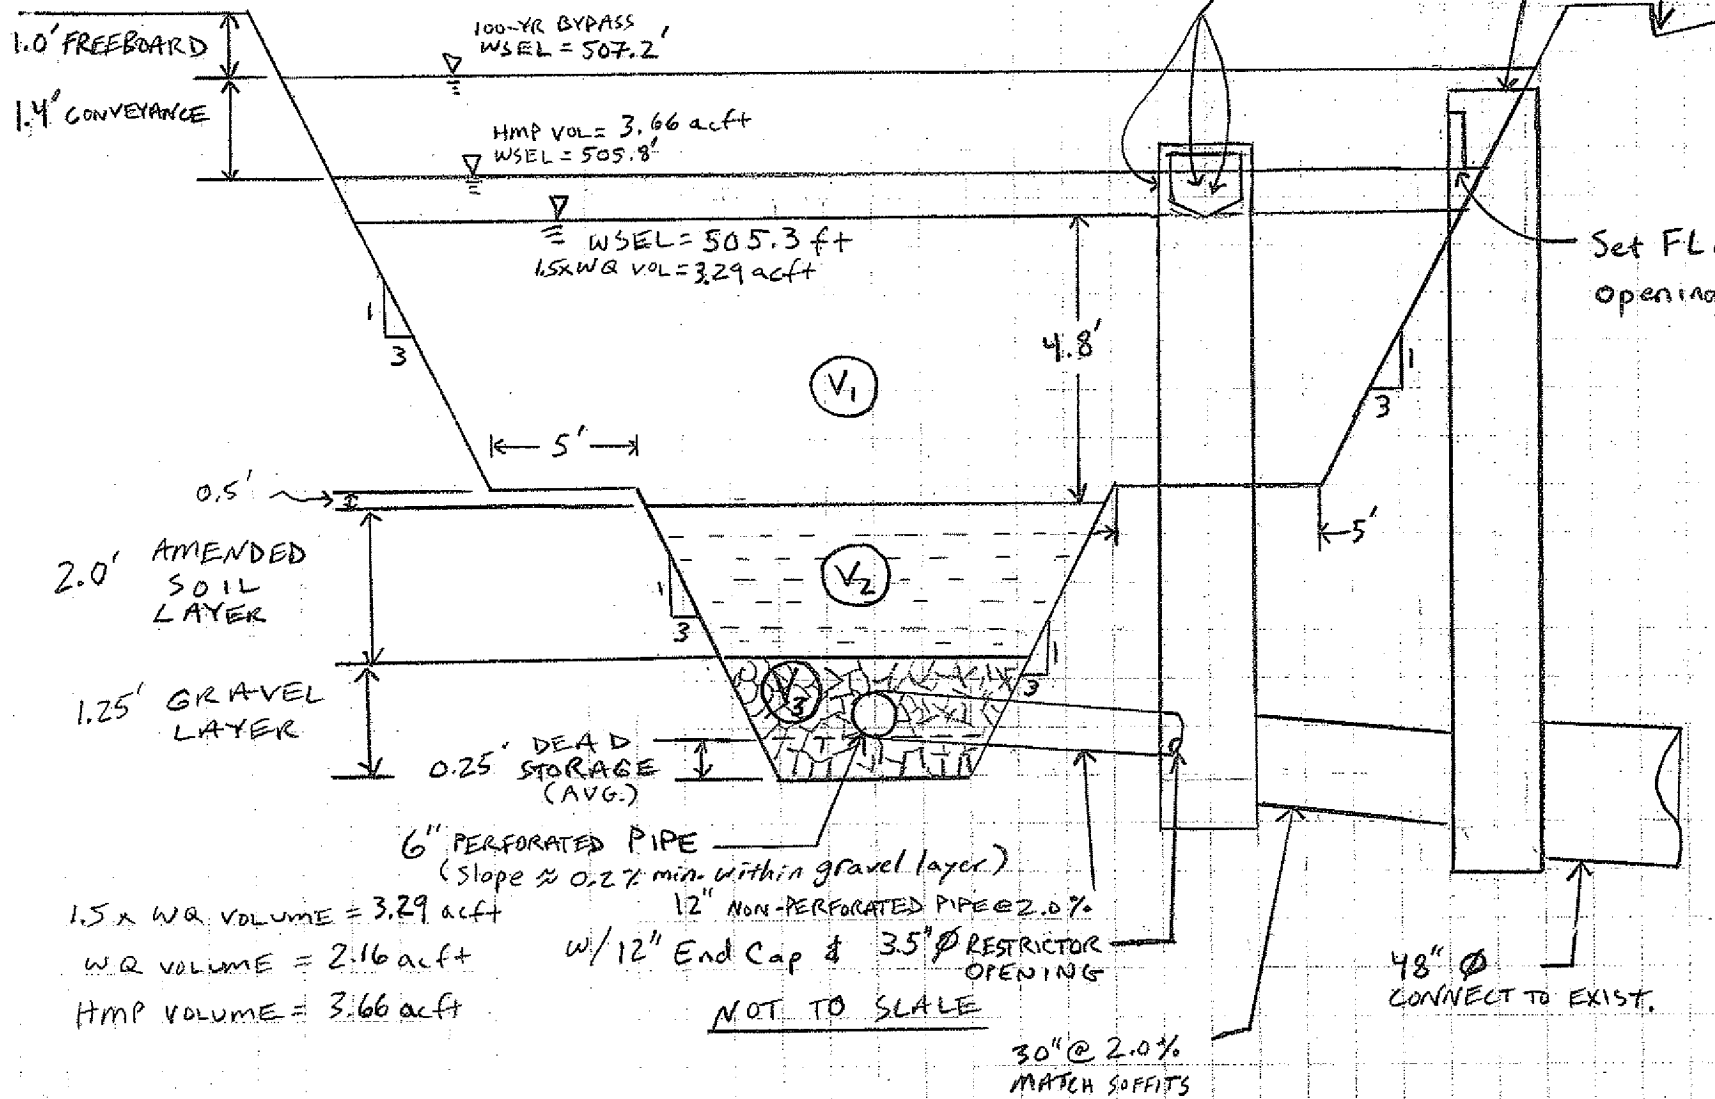 1.0' FREEBOARD
100-YR BYPASS
WSEL = 507.2'
1.4' CONVEYANCE
HMP VOL = 3.66 acft
WSEL = 505.8'
WSEL = 505.3 ft
1.5xWQ VOL = 3.29 acft
Set FL.
opening
1
3
4.8'
1
3
V1
5'
0.5'
5'
2.0' AMENDED
SOIL
LAYER
V2
1
3
1
3
1.25' GRAVEL
LAYER
V3
0.25' DEAD
STORAGE
(AVG.)
6" PERFORATED PIPE
(Slope ≈ 0.2% min. within gravel layer)
12" NON-PERFORATED PIPE @ 2.0%
W/12" End Cap & 3.5" Ø RESTRICTOR
OPENING
1.5 x WQ VOLUME = 3.29 acft
WQ VOLUME = 2.16 acft
HMP VOLUME = 3.66 acft
NOT TO SCALE
48" Ø
CONNECT TO EXIST.
30" @ 2.0%
MATCH SOFFITS